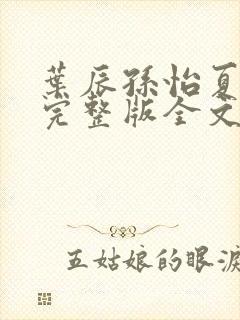 葉辰孫怡夏
完整版全文
五姑娘的眼淚